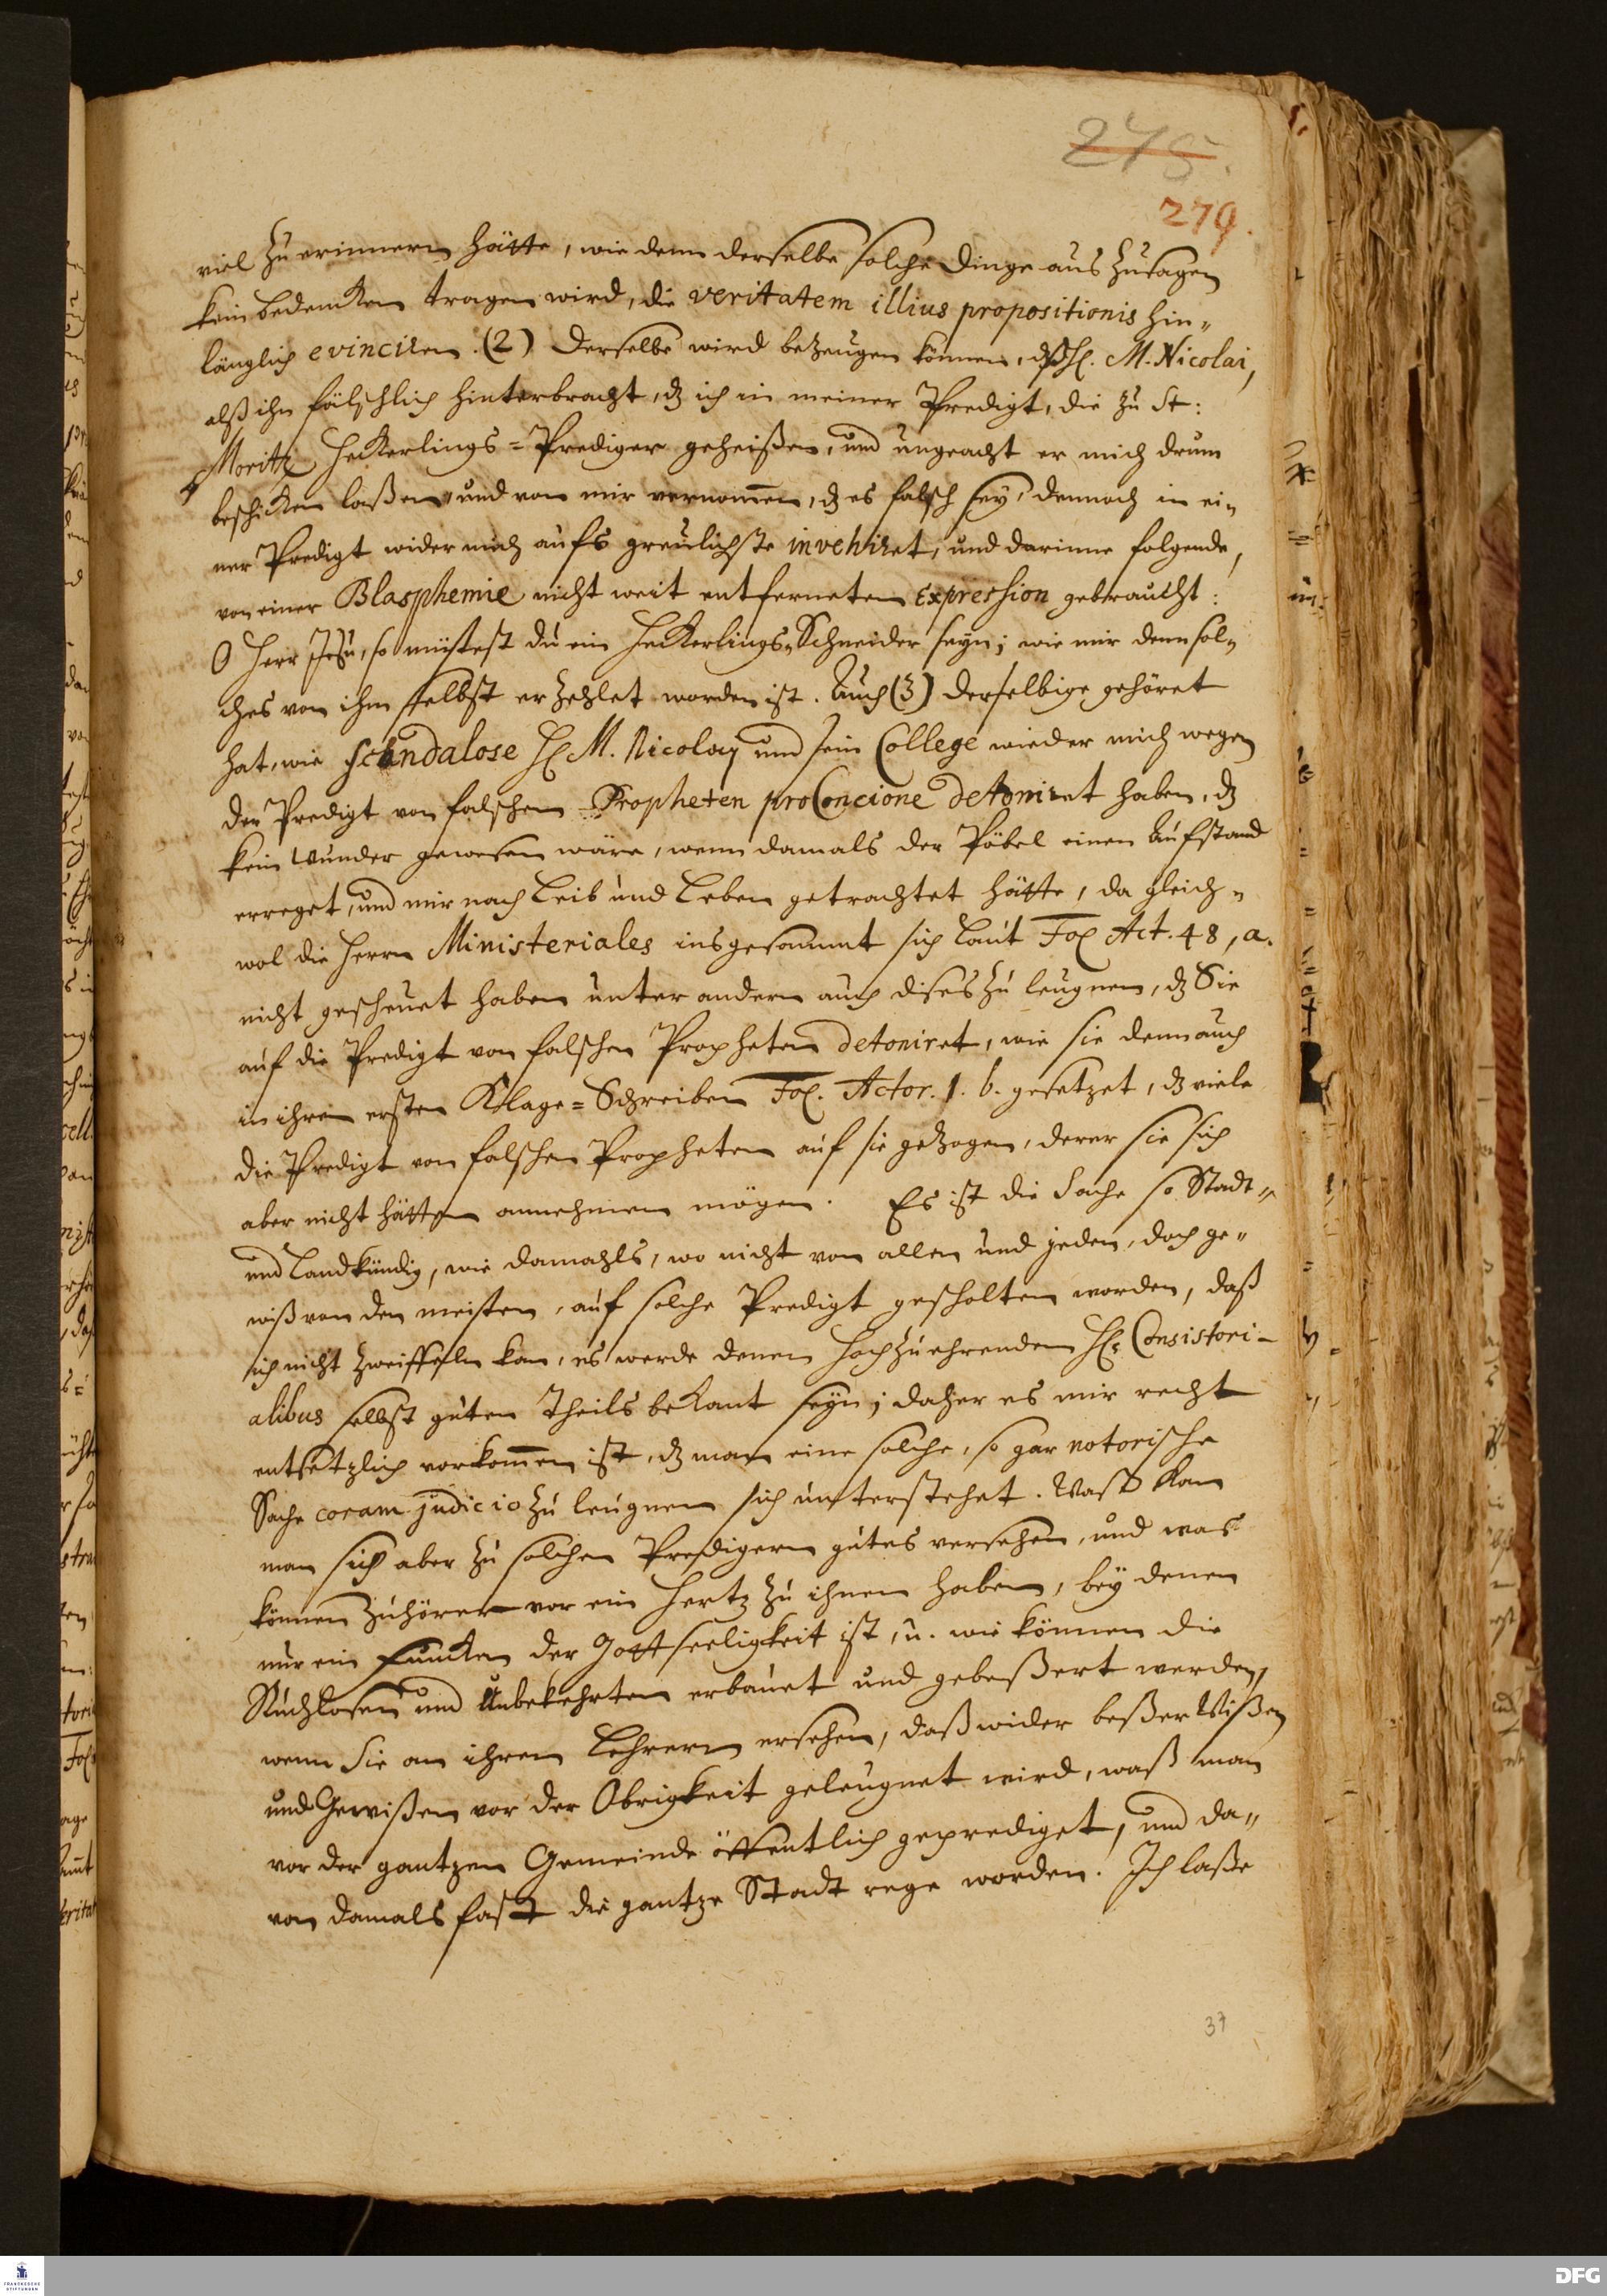 275.
279.
viel zu erinnern hätte, wie denn derselbe solche dinge auszusagen
kein bedencken tragen wird, die veritatem illius propositionis hin-
länglich evinciren. (2) Derselbe wird bezeugen können, dß H. M. Nicolai,
alß ihn fälschlich hinterbracht, dz ich in meiner Predigt, die zu St:
Moritz Heckerlings-Prediger geheißen, und ungeacht er mich drum
beschicken laßen, und von mir vernom̄en, dz es falsch sey, dennoch in ei-
ner Predigt wider mich aufs greulichste invehiret, und darinne folgende,
von einer Blasphemie nicht weit entferneten Expression gebraucht:
O Herr Jesu, so müstest du ein Heckerlings-Schneider seyn; wie mir denn sol-
ches von ihm selbst erzehlet worden ist. Auch (3) derselbige gehöret
hat, wie scandalose H. M. Nicolay und sein College wieder mich wegen
der Predigt von falschen Propheten pro Concione detoniret haben, dz
kein wunder gewesen wäre, wenn damals der Pöbel einen Aufstand
erreget, und mir nach Leib und Leben getrachtet hätte, da gleich-
wol die Herrn Ministeriales insgesammt sich laut Fol Act. 48, a.
nicht gescheuet haben unter andern auch dises zu leugnen, dz Sie
auf die Predigt von falschen Propheten detoniret, wie sie denn auch
in ihren ersten Klage-Schreiben Fol. Actor. 1. b. gesetzet, dz viele
die Predigt von falschen Propheten auf sie gezogen, derer sie sich
aber nicht hätten annehmen mögen. Es ist die Sache so Stadt-
und Landkündig, wie damahls, wo nicht von allen und jeden, doch ge-
wiß von den meisten, auf solche Predigt gescholten worden, daß
ich nicht zweiffeln kan, es werde denen Hochzuehrenden H. Consistori-
alibus selbst guten Theils bekant seyn; daher es mir recht
entsetzlich vorkom̄en ist, dz man eine solche, so gar notorische
Sache coram judicio zu leugnen sich unterstehet. Waß kan
man sich aber zu solchen Predigern gutes versehen, und was
können Zuhörer vor ein Hertz zu ihnen haben, bey denen
nur ein Funcken der Gottseeligkeit ist, u. wie können die
Ruchlosen und Unbekehrten erbauet und gebeßert werden,
wenn Sie an ihren Lehrern ersehen, daß wider beßer Wißen
und Gewißen vor der Obrigkeit geleugnet wird, waß man
vor der gantzen Gemeinde öffentlich geprediget, und da-
von damals fast die gantze Stadt rege worden. Ich laße
37
FRANCKESCHE
STIFTUNGEN
DFG